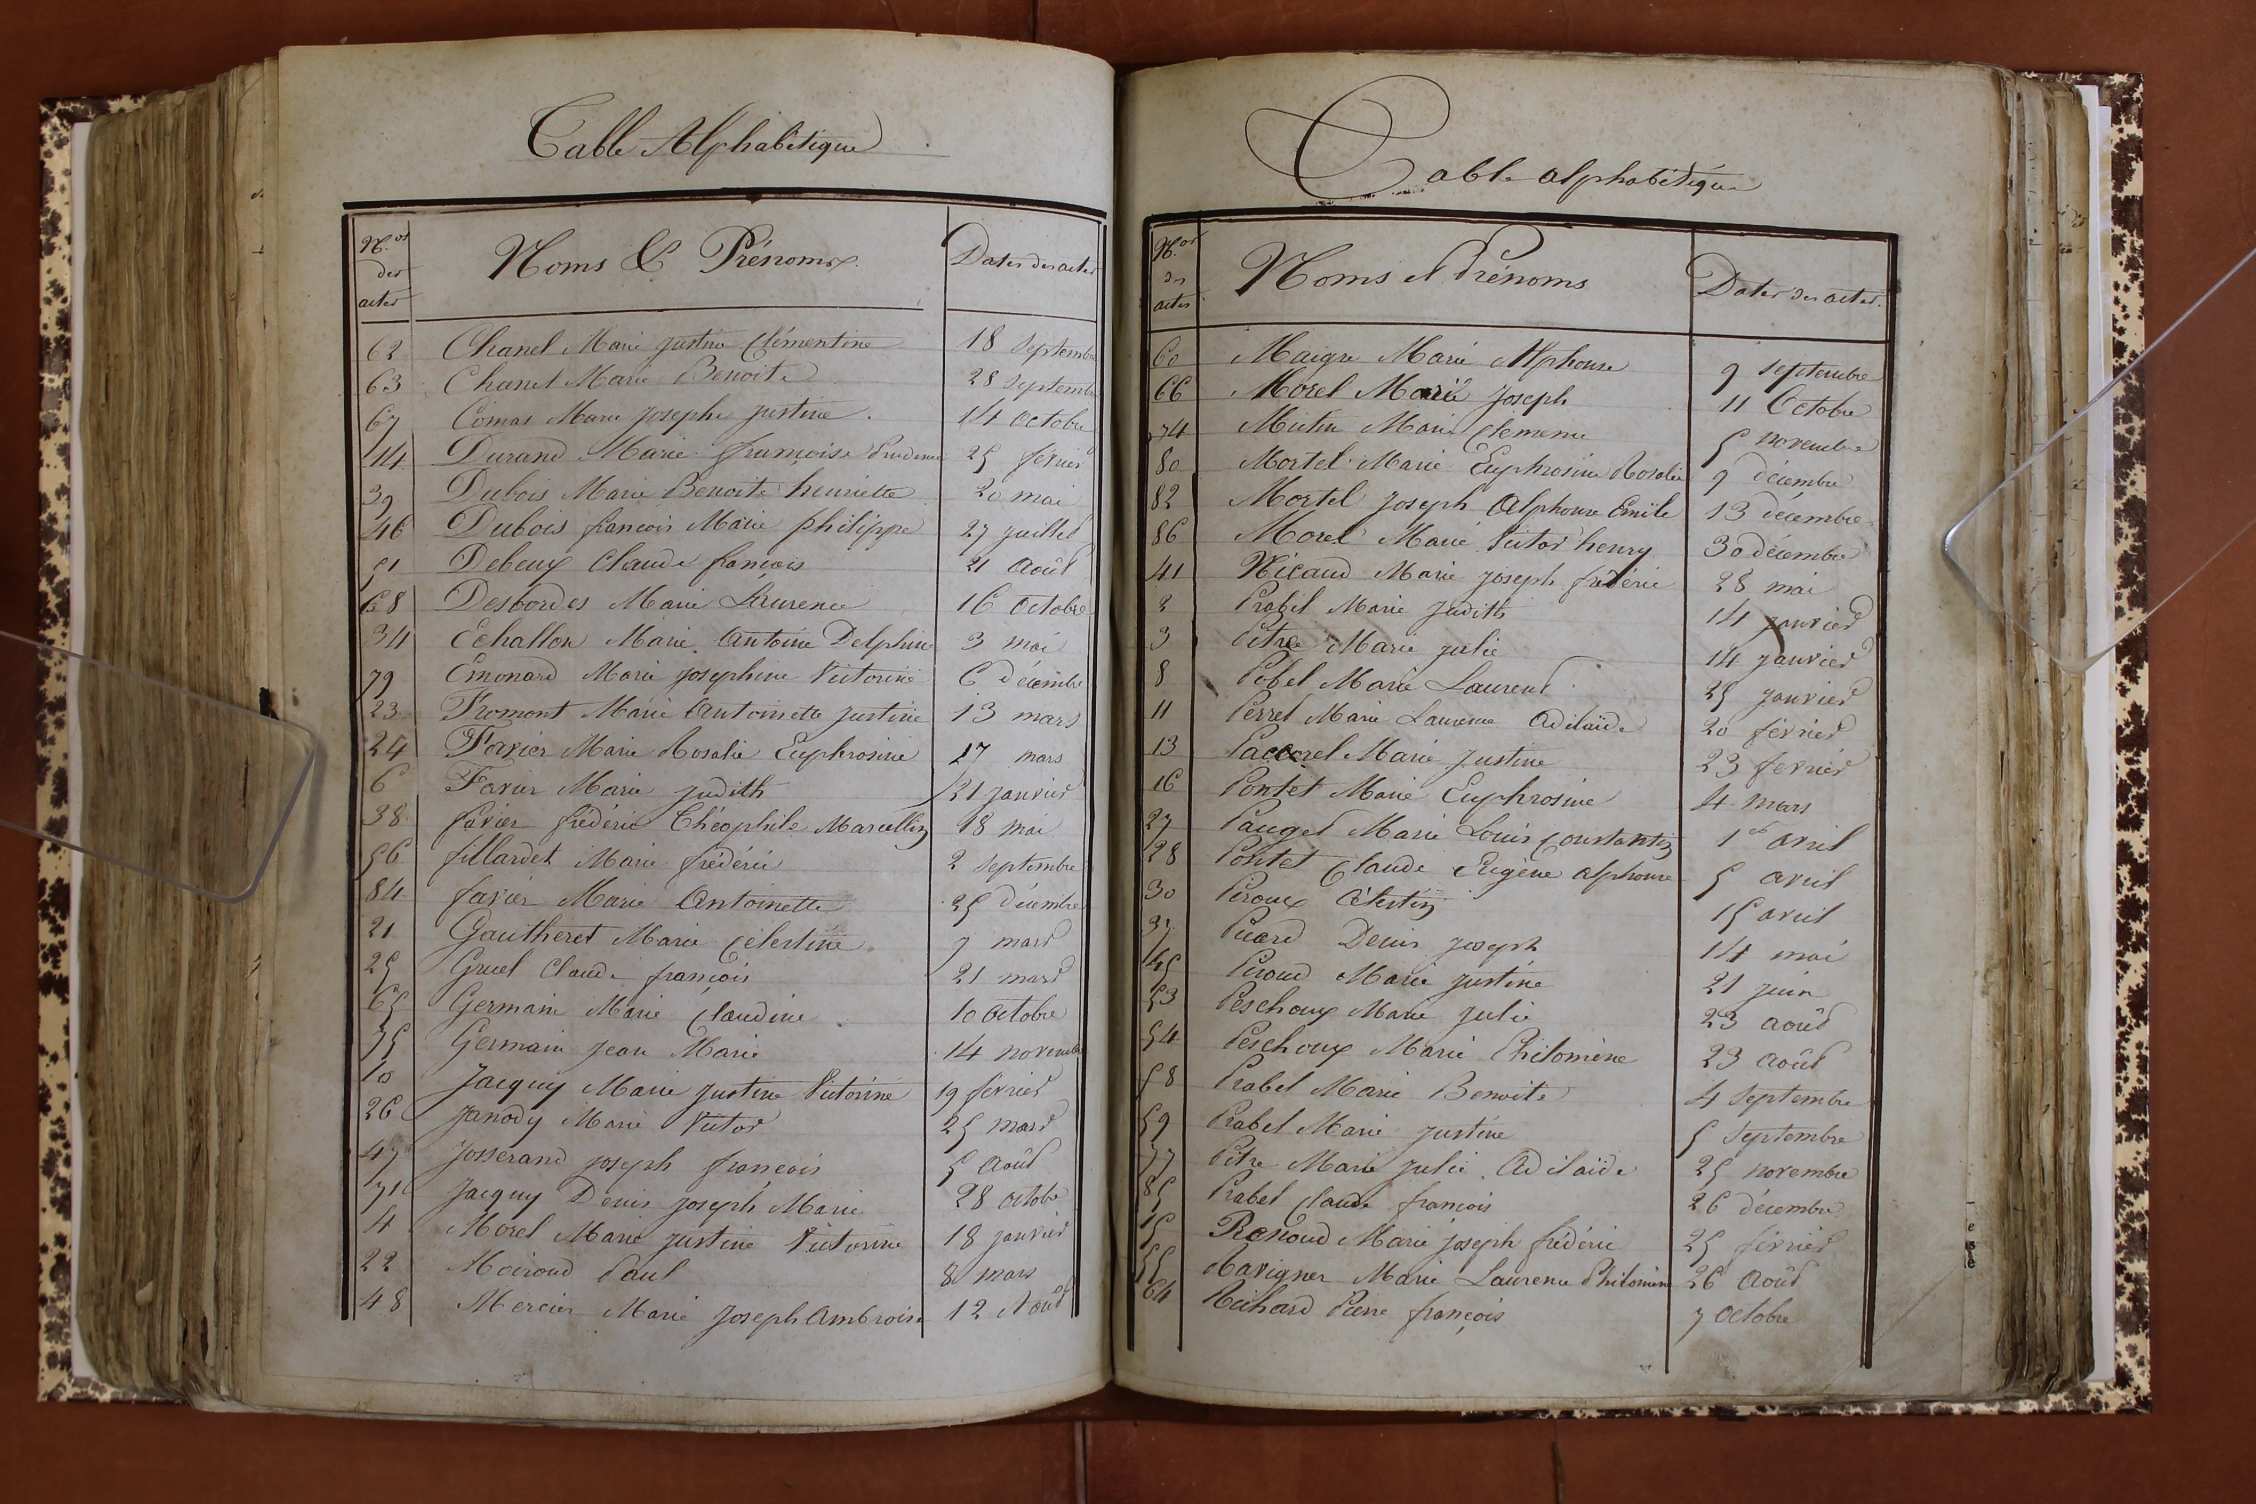 Table Alphabétique
Nos des actes Noms & Prénoms Dates des actes
62 Chanel Marie justine Clémentine 18 septembre
63 Chanel Marie Benoite 28 septembre
67 Comas Marie josephe justine 14 octobre
14 Durand Marie françoise Prudence 25 février
39 Dubois Marie Benoite henriette 20 mai
46 Dubois françois Marie philippe 27 juillet
51 Debeux Claude françois 21 Août
68 Desbordes Marie Laurence 16 Octobre
34 Echallon Marie Antoine Delphin 3 mai
79 Emonard Marie josephine Victorine 6 décembre
23 Fromont Marie Antoinette justine 13 mars
24 Favier Marie Rosalie Euphrosine 17 mars
6 Favier Marie judith 21 janvier
38 favier frédéric Théophile Marcellin 18 mai
56 fillardet Marie frédéric 2 septembre
84 favier Marie Antoinette 25 décembre
21 Gautheret Marie Célestine 7 mars
25 Gruel Claude françois 21 mars
65 Germain Marie Claudine 10 Octobre
75 Germain jean Marie 14 novembre
10 Jacquy Marie justine Victorine 19 février
26 janody Marie Victor 25 mars
47 Josserand joseph françois 5 Août
71 Jacquy Denis joseph Marie 28 octobre
4 Morel Marie justine Victorine 18 janvier
22 Moiroud Paul 8 mars
48 Mercier Marie joseph Ambroise 12 Août
Table alphabétique
Nos des actes Noms et Prénoms Dates des actes
60 Maigre Marie Alphonse 9 septembre
66 Morel Marie joseph 11 Octobre
74 Mutin Marie Clemence 5 novembre
80 Mortel Marie Euphrosine Rosalie 9 décembre
82 Mortel joseph Alphonse Emile 13 décembre
86 Morel Marie Victor henry 30 décembre
41 Nicaud Marie joseph frédéric 28 mai
2 Prabel Marie judith 14 janvier
3 Pitre Marie julie 14 janvier
8 Pobel Marie Laurent 25 janvier
11 Perret Marie Laurence Adélaïde 20 février
13 Paccorel Marie justine 23 fevrier
16 Pontet Marie Euphrosine 4 mars
27 Pauget Marie Louis Constantin 1er avril
28 Pontet Claude Eugène alphonse 5 avril
30 Piroux Célestin 15 avril
37 Picard Denis joseph 14 mai
45 Piroud Marie justine 21 juin
53 Peschoux Marie julie 23 août
54 Peschoux Marie Philomène 23 Août
58 Prabel Marie Benoite 4 septembre
59 Prabel Marie justine 5 septembre
77 Pitre Marie julie Adélaïde 25 novembre
85 Prabel Claude françois 26 décembre
15 Renoud Marie joseph frédéric 25 février
55 Ravigner Marie Laurence Philomène 26 Août
64 Richard Pierre françois 7 octobre